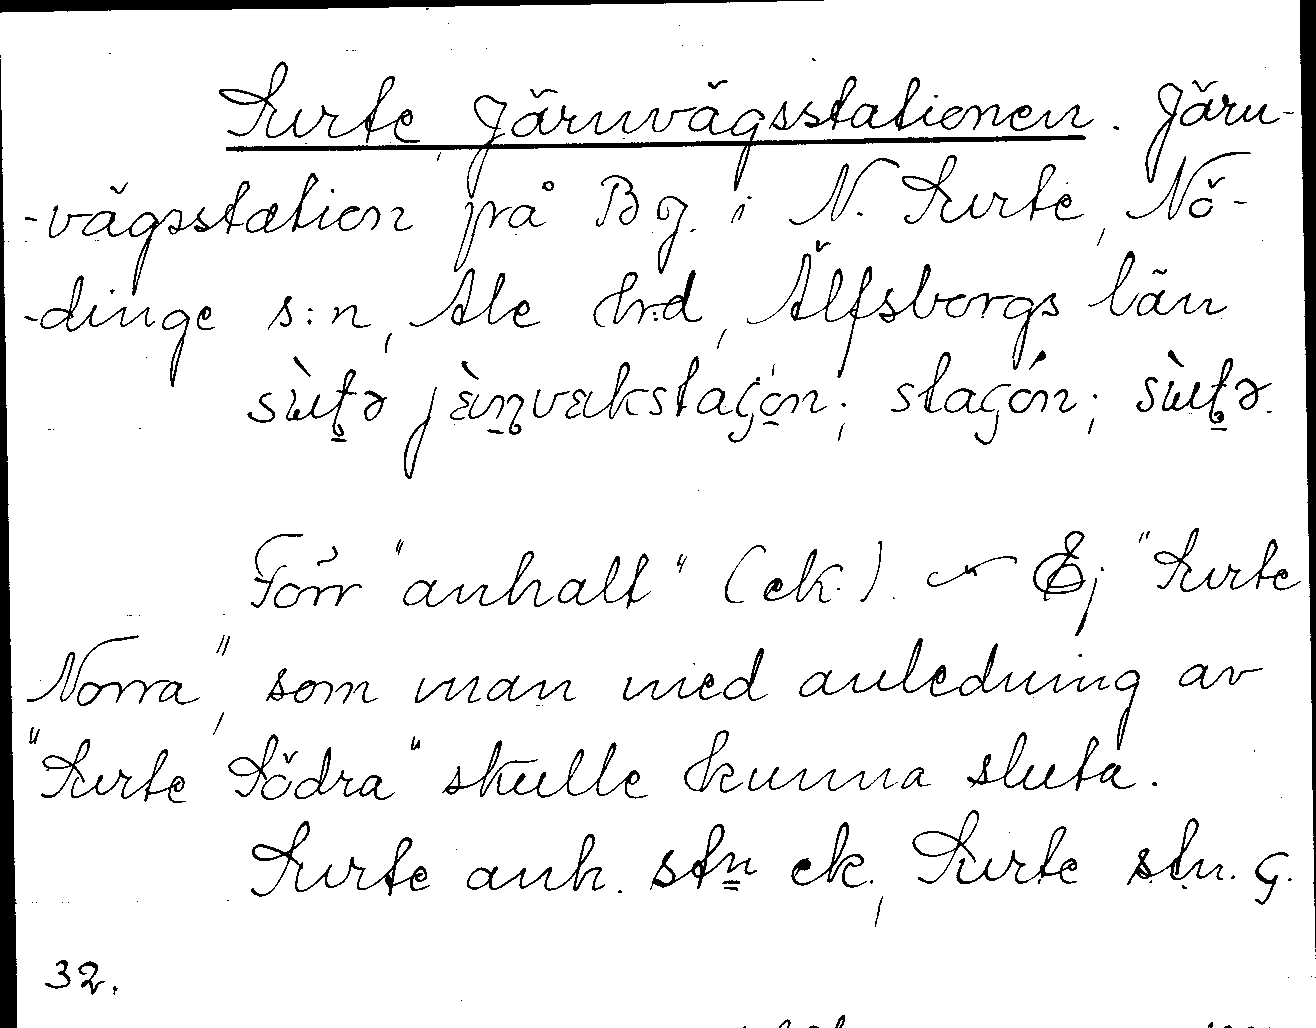 Surte, Järnvägsstationen. Järn-
-vägsstation på Bg. i N. Surte, Nö-
-dinge s:n, Ale hrd, Älfsborgs län
Förr "anhalt" (ek.). Ej "Surte
Norra", som man med anledning av
"Surte Södra" skulle kunna sluta.
Surte anh. stn ek., Surte stn. G.
32.